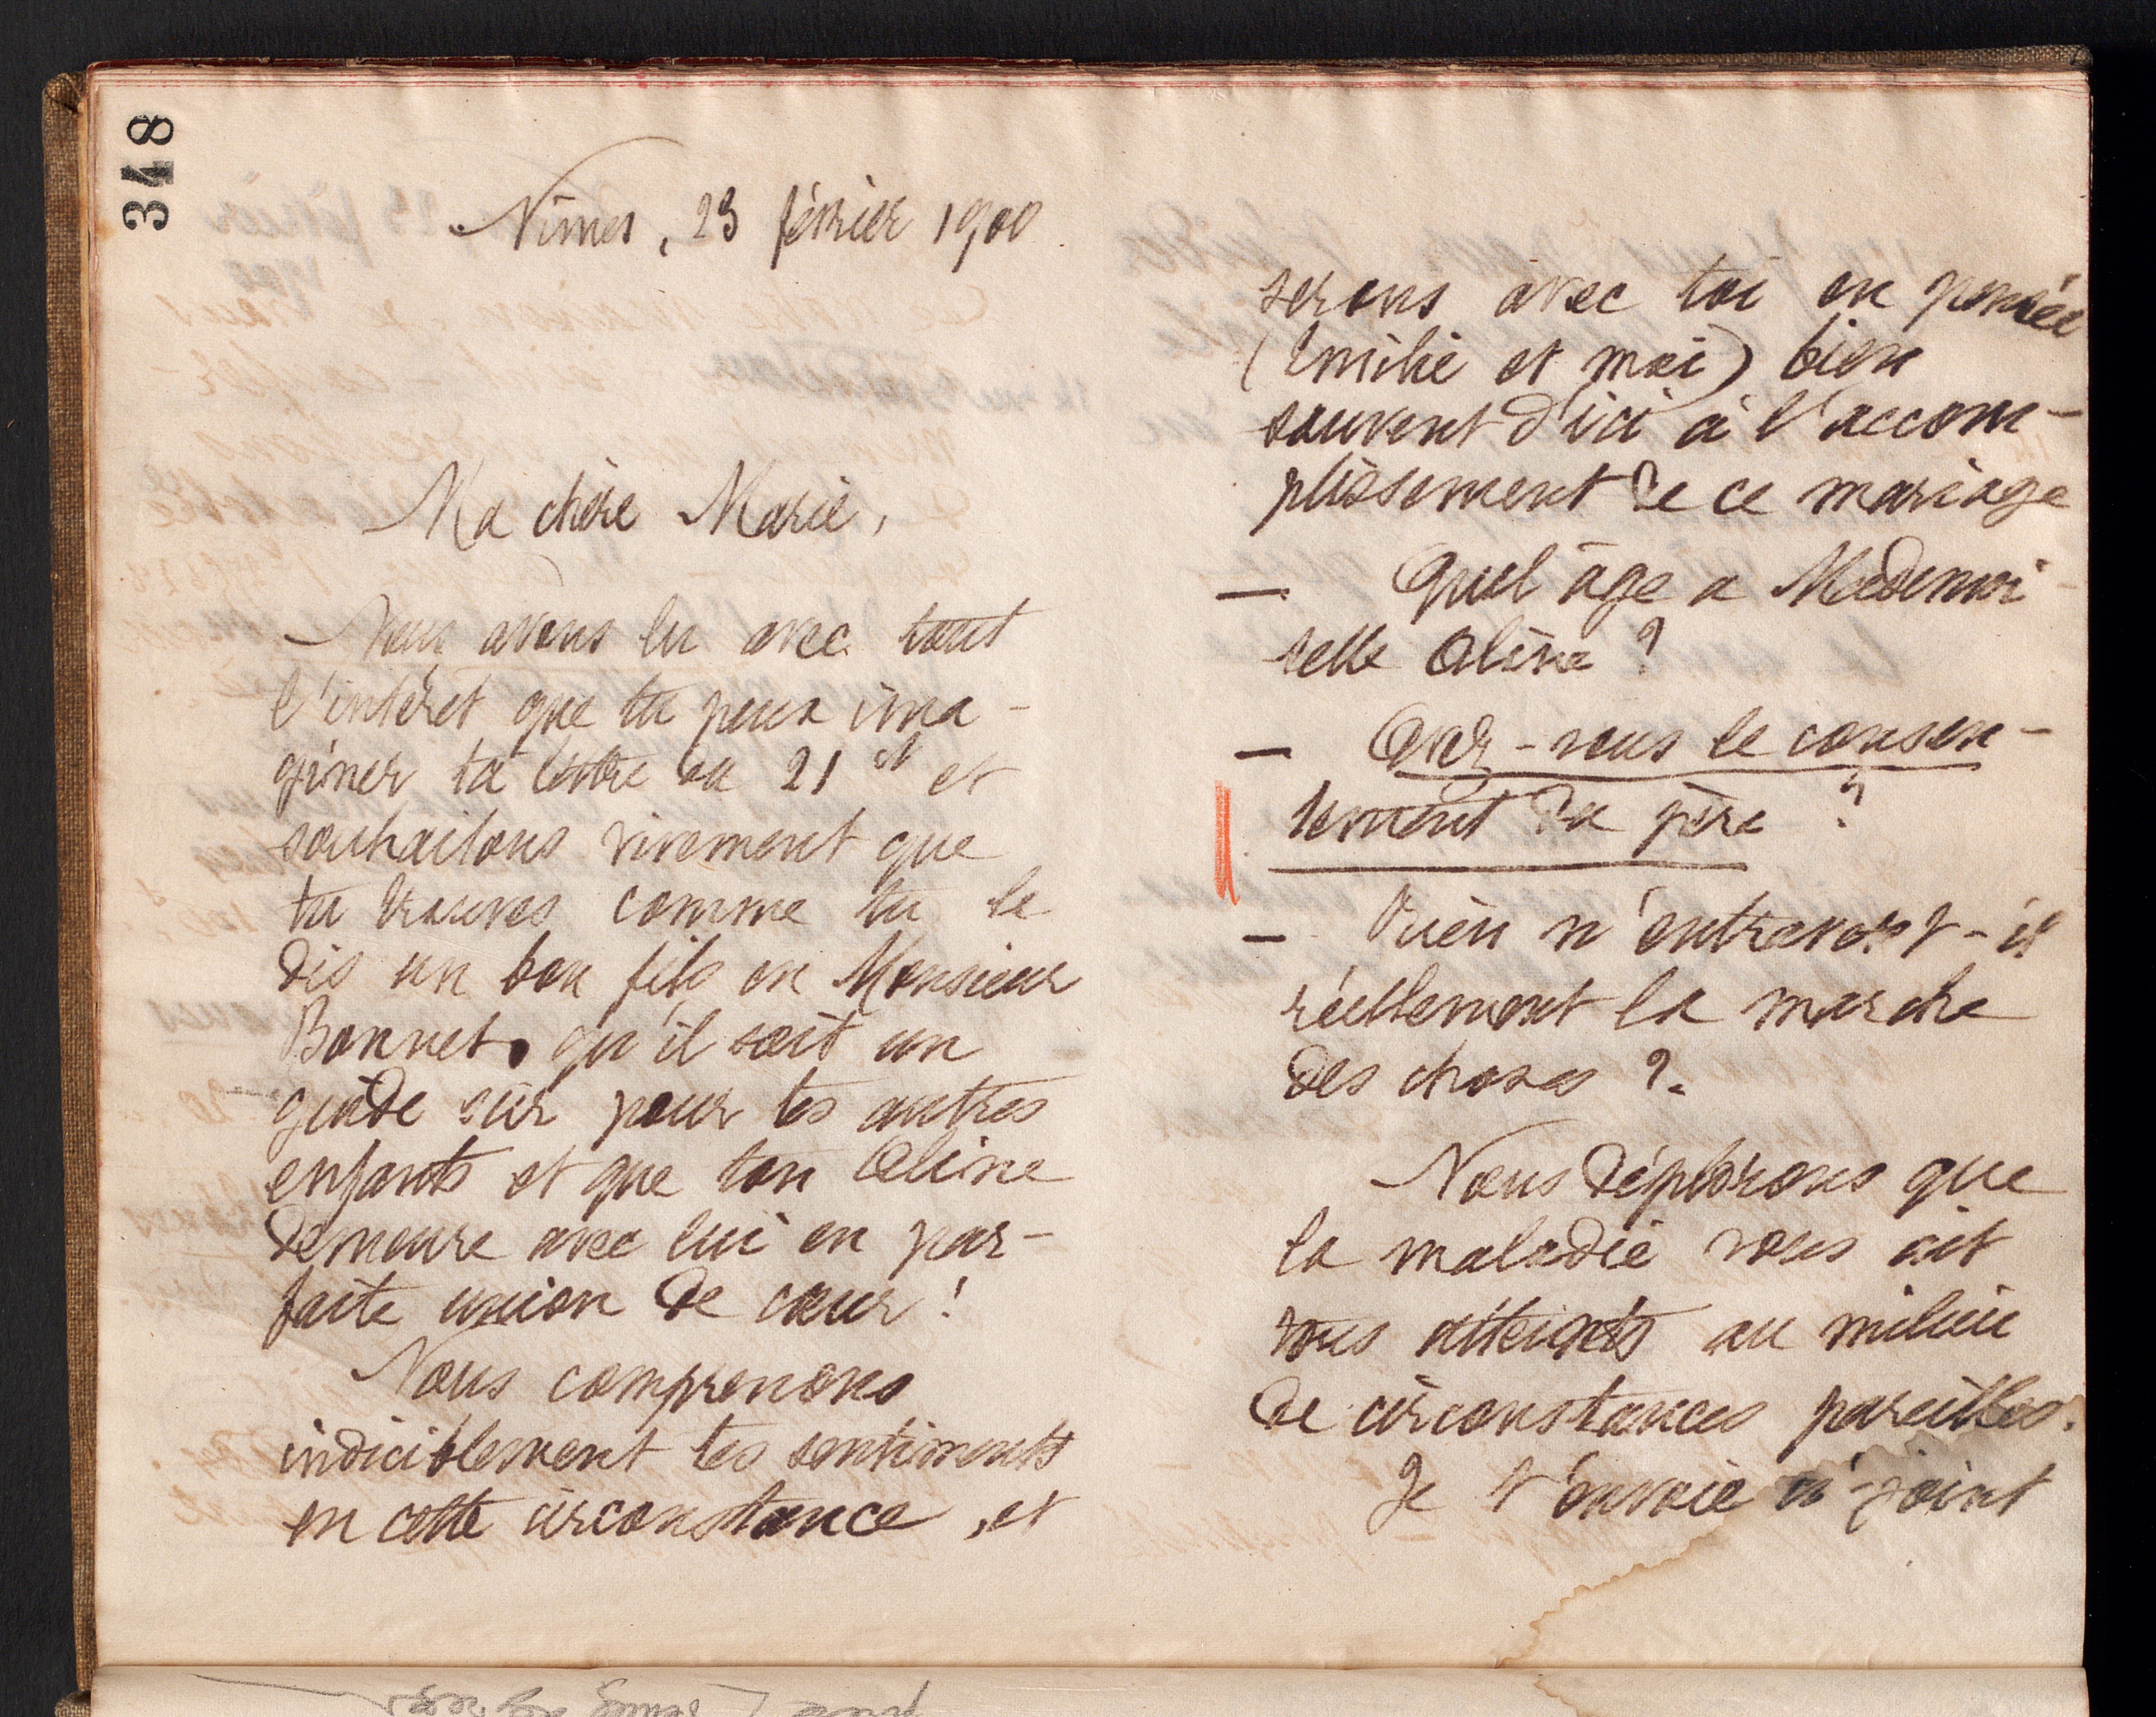 348
Nîmes, 23 février 1900
Ma chère Marie,
Nous avons lu avec tout
l'intéret que tu peux ima-
giner ta lettre du 21 ct et
souhaitons vivement que
tu trouves comme tu le
dis un bon fils en Monsieur
Bonnet, qu'il soit un
guide sûr pour tes autres
enfants et que ton Aline
demeure avec lui en par-
faite union de cœur !
Nous comprenons
indiciblement tes sentiments
en cette circonstance, et
serons avec toi en pensée
(Emilie et moi) bien
souvent d'ici à l'accom-
plissement de ce mariage
— Quel âge a Mademoi-
selle Aline ?
— Avez-vous le consen-
tement du père ?
— Rien n'entravera-t-il
réellement la marche
des choses ?
Nous déplorons que
la maladie vous ait
tous atteints au milieu
de circonstances pareilles.
Je t'envoie ci-joint